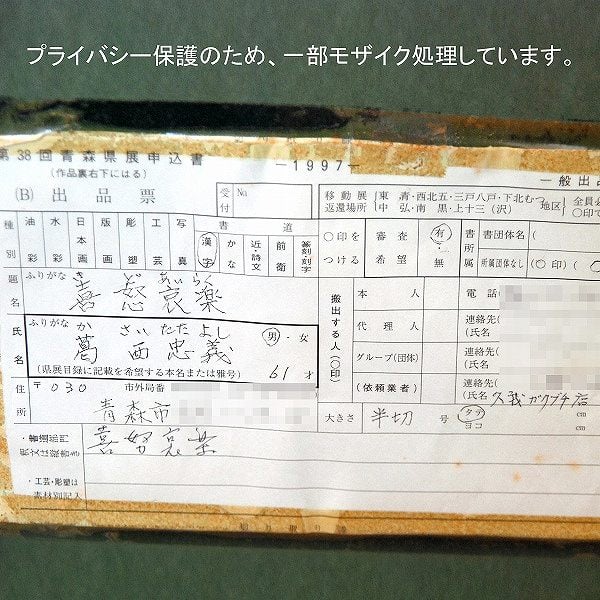 プライバシー保護のため、一部モザイク処理しています。
第38回青森県展申込書
(作品裏右下にはる)
-1997-
一般出品
(B) 出品票
受付
No.
移動展
返還場所
東 清・西北五・三戸八戸・下北むつ
中 弘・南 黒・上十三(沢)
地区
全員必
〇印で
種別
油彩
水彩
日本画
版画
彫塑
工芸
写真
書道
漢字
かな
近・詩文
前衛
篆刻刻字
〇印を
つける
審査
希望
有・無
書所属
書団体名(
所属団体なし (〇印) (
題名
ふりがな
き ど あいらく
喜怒哀楽
搬出する人(〇印)
本人
代理人
グループ(団体)
(依頼業者)
電話(
連絡先(
(氏名
連絡先(
(氏名
連絡先(
(氏名
久我ガクブチ店
氏名
ふりがな
か さい ただよし
葛西忠義
男・女
(県展目録に記載を希望する本名または雅号)
61才
住所
〒030
市外局番
青森市
大きさ
半切
号
タテ
ヨコ
cm
cm
・書道部門
釈文は楷書き
喜努哀楽
・工芸・彫塑は
素材別記入
切り取り線